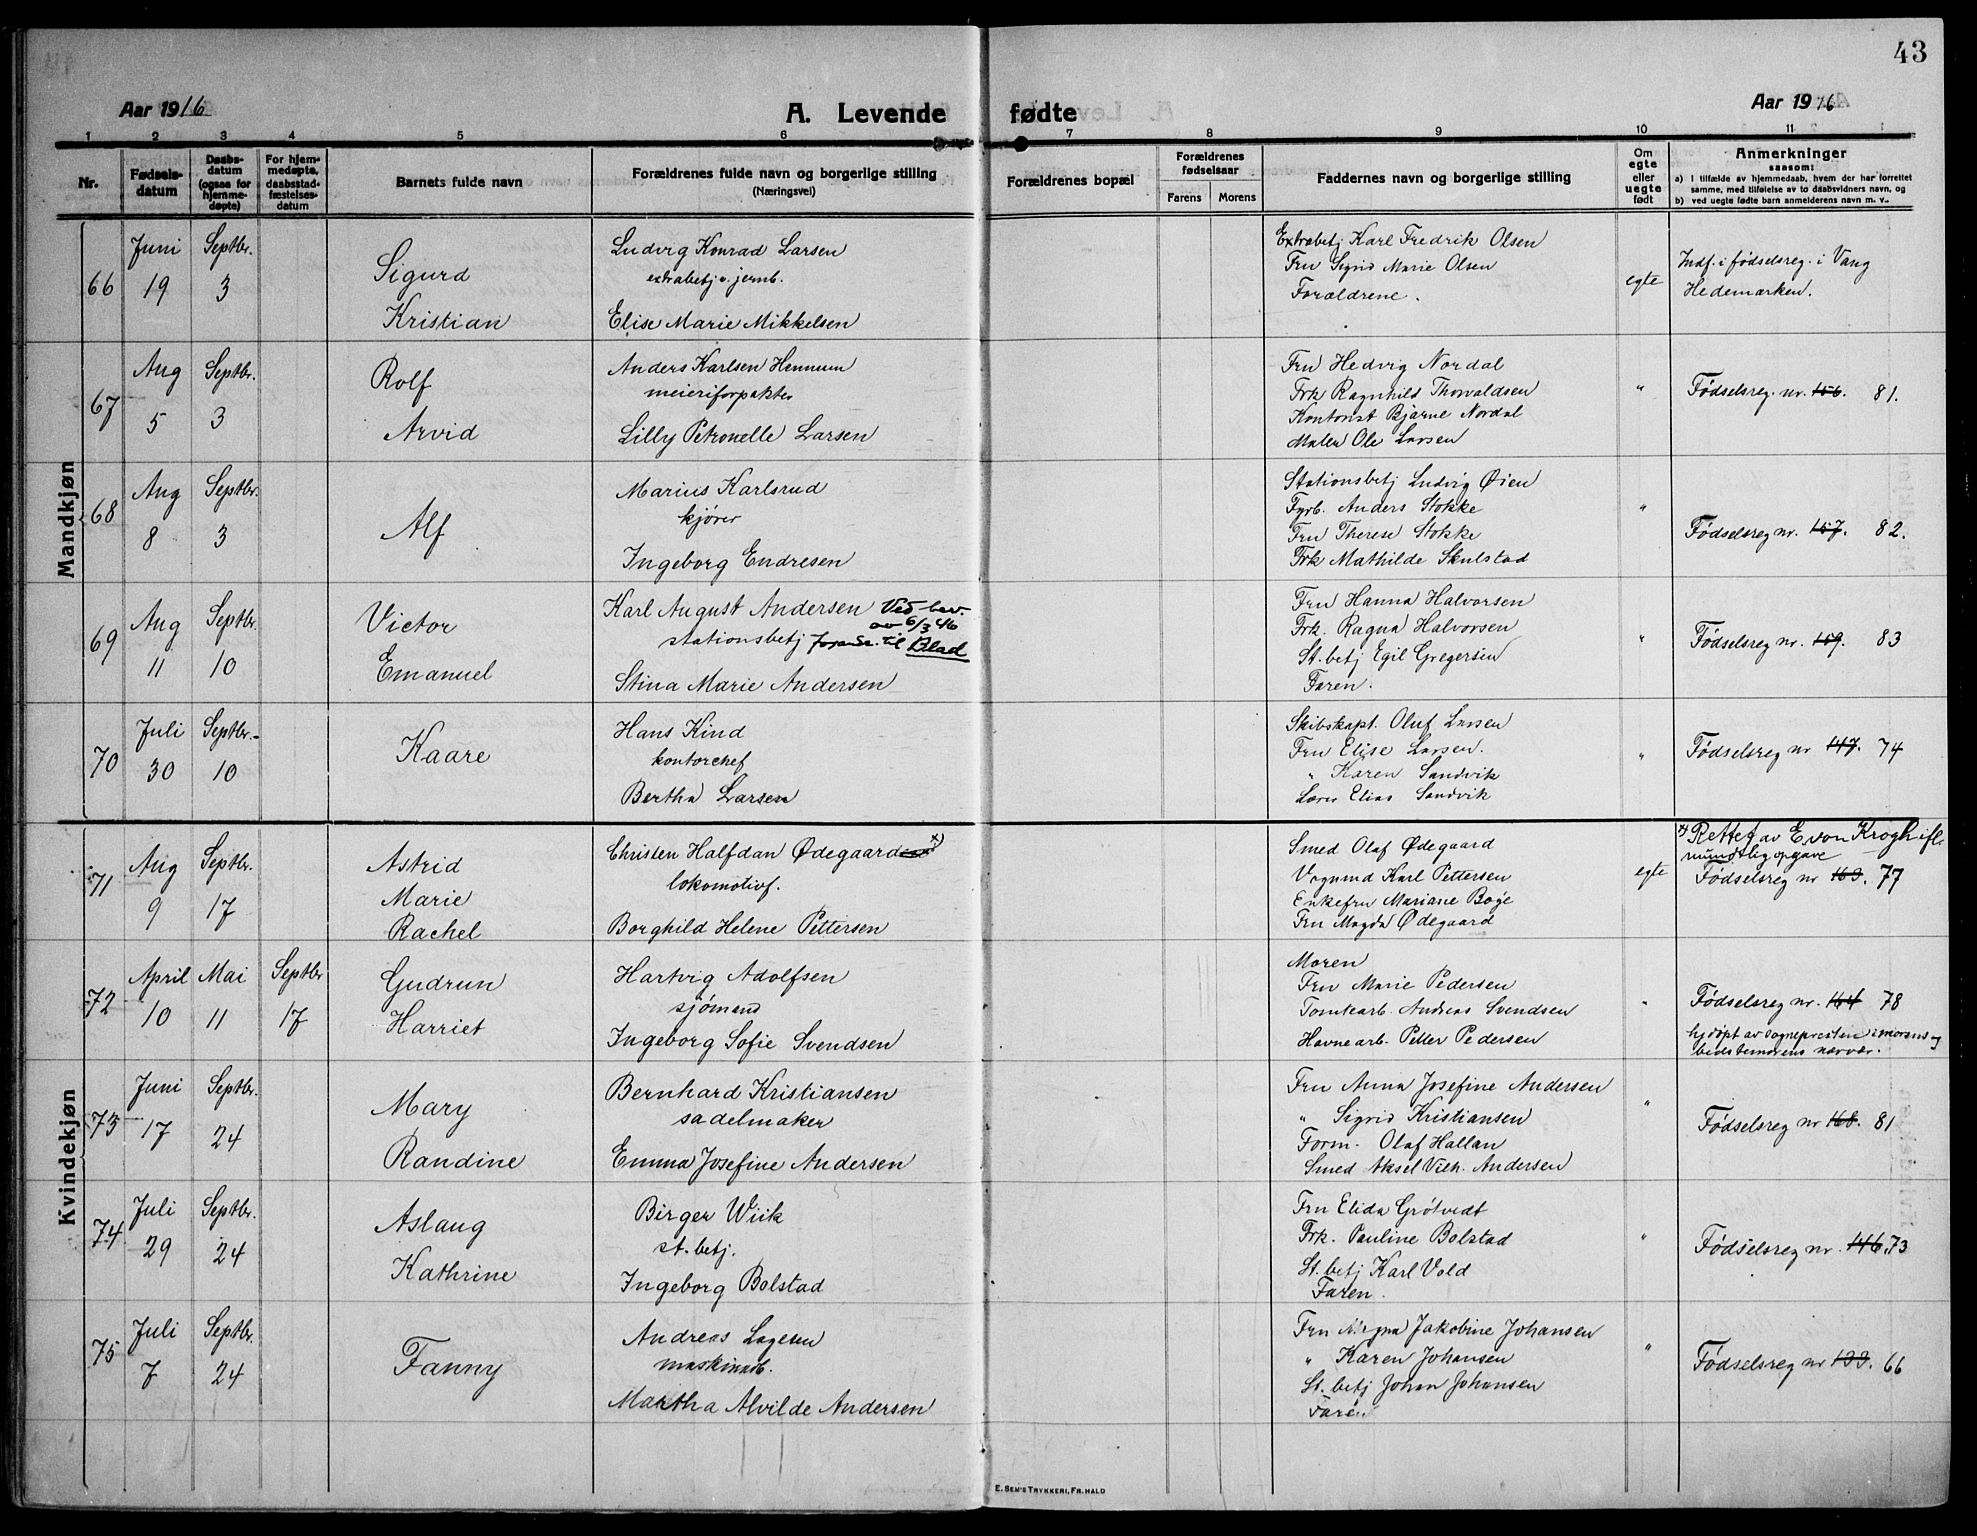 43
Aar 1916
A. Levende fødte
Aar 1916
1 2 3 4 5 6 7 8 9 10 11
Nr.
Fødsels-
datum
Daabs-
datum
(ogsaa for
hjemme-
døpte)
For hjem-
medøpte,
daabsstad-
fæstelses-
datum
Barnets fulde navn
Forældrenes fulde navn og borgerlige stilling
(Næringsvei)
Forældrenes bopæl
Forældrenes
fødselsaar
Farens Morens
Faddernes navn og borgerlige stilling
Om
egte
eller
uegte
født
Anmerkninger
saasom:
a) I tilfælde av hjemmedaab, hvem der har forrettet
samme, med tilføielse av to daabsvidners navn, og
b) ved uegte fødte barn anmelderens navn m. v..
Mandkjøn
66
Juni
19
Septbr.
3
Sigurd
Kristian
Ludvig Konrad Larsen
extrabetj v. jernb.
Elise Marie Mikkelsen
Extrabetj Karl Fredrik Olsen
Fru Sigrid Marie Olsen
Forældrene.
egte
Indf. i fødselsreg. i Vang
Hedemarken.
67
Aug
5
Septbr.
3
Rolf
Arvid
Anders Karlsen Hennum
meieriforpakter
Lilly Petronelle Larsen
Fru Hedvig Nordal
Frk Ragnhild Thorvaldsen
Kontorist Bjarne Nordal
Maler Ole Larsen
"
Fødselsreg. nr. 156. 81.
68
Aug
8
Septbr.
3
Alf
Marius Karlsrud
kjører
Ingeborg Endresen
Stationsbetj Ludvig Øien
Fyrb. Anders Stokke
Fru Therese Stokke
Frk Mathilde Skulstad
"
Fødselsreg nr. 157. 82.
69
Aug
11
Septbr.
10
Victor
Emanuel
Karl August Andersen Ved bev.
av 6/3 46
stationsbetj forandr. til Blad
Stina Marie Andersen
Fru Hanna Halvorsen
Frk. Ragna Halvorsen
St. betj Egil Gregersen
Faren.
"
Fødselsreg nr. 159. 83
70
Juli
30
Septbr.
10
Kaare
Hans Kind
kontorchef
Bertha Larsen
Skibskapt. Oluf Larsen
Fru Elise Larsen.
" Karen Sandvik
Lærer Elias Sandvik
"
Fødselsreg nr 147. 74
Kvindekjøn
71
Aug
9
Septbr.
17
Astrid
Marie
Rachel
Christen Halfdan Ødegaard x)
lokomotivf.
Borghild Helene Pettersen
Smed Olaf Ødegaard
Vognmd Karl Pettersen
Enkefru Mariane Bøge
Fru Magda Ødegaard
egte
x) Rettet av E. von Krogh ifl.
mundtlig opgave
Fødselsreg nr 163. 77
72
April
10
Mai
11
Septbr
17
Gudrun
Harriet
Hartvig Adolfsen
sjømand
Ingeborg Sofie Svendsen
Moren
Fru Marie Pedersen
Tomtearb. Andreas Svendsen
Havnearb. Petter Pedersen
"
Fødselsreg nr. 164 78
hj.døpt av sognepresten i morens og
bedstemorens nærvær.
73
Juni
17
Septbr.
24
Mary
Randine
Bernhard Kristiansen
sadelmaker
Emma Josefine Andersen
Fru Anna Josefine Andersen
" Sigrid Kristiansen
Form. Olaf Hallan
Smed Aksel Vilh. Andersen
"
Fødselsreg nr 168. 81
74
Juli
29
Septbr.
24
Aslaug
Kathrine
Birger Wiik
st. betj.
Ingeborg Bolstad
Fru Elida Grøtvedt
Frk. Pauline Bolstad
St. betj Karl Vold
Faren.
"
Fødselsreg nr. 146. 73
75
Juli
7
Septbr.
24
Fanny
Andreas Lagesen
maskinarb.
Martha Alvilde Andersen
Fru Jakobine Johansen
" Karen Johansen
St. betj Johan Johansen
Faren
"
Fødselsreg nr 133. 66
E. SEM'S TRYKKERI, FR. HALD